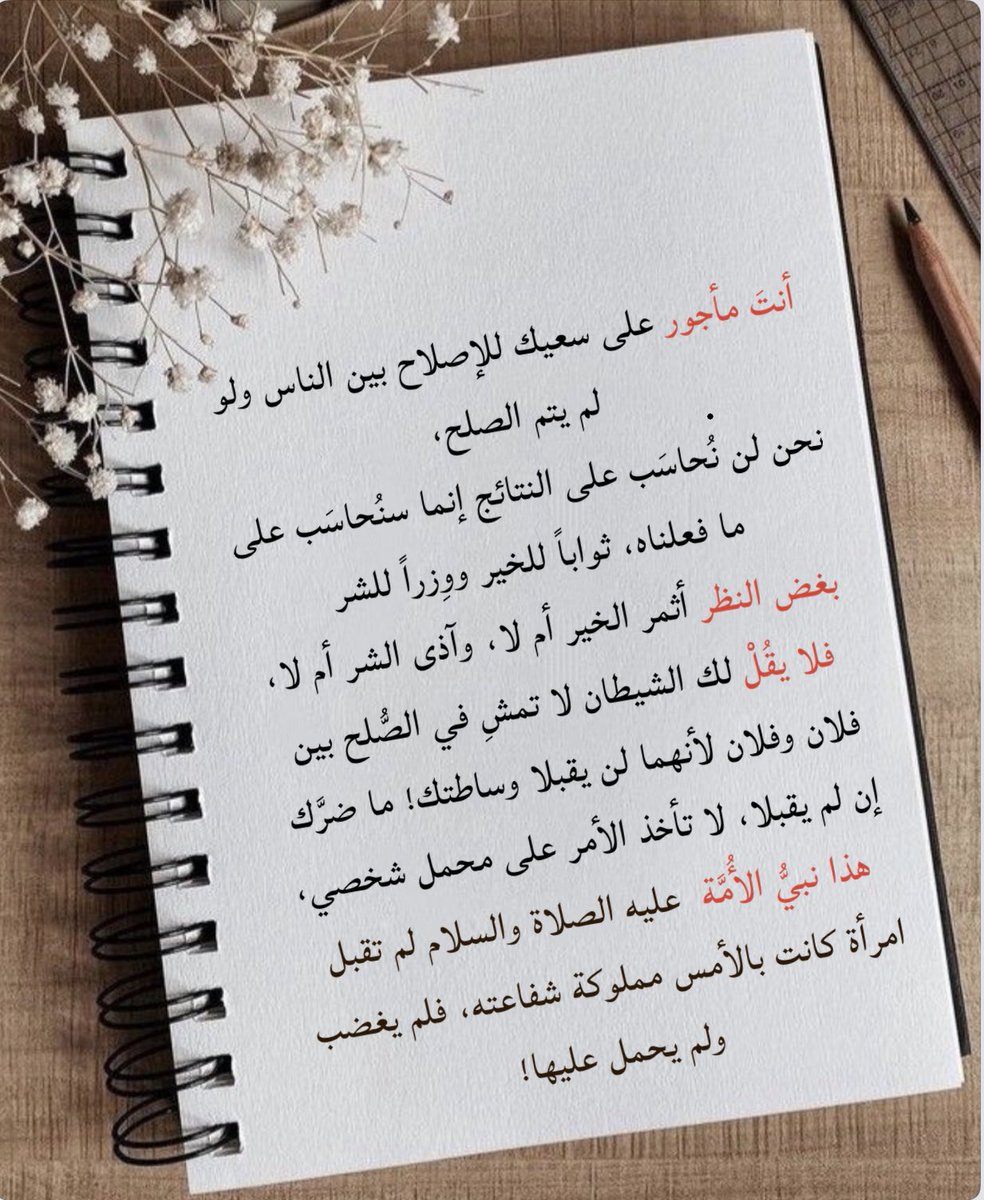 أنتَ مأجور على سعيك للإصلاح بين الناس ولو
لم يتم الصلح،
نحن لن نُحاسَب على النتائج إنما سنُحاسَب على
ما فعلناه، ثواباً للخير ووِزراً للشر
بغض النظر أثمر الخير أم لا، وآذى الشر أم لا،
فلا يقُلْ لك الشيطان لا تمشِ في الصُّلح بين
فلان وفلان لأنهما لن يقبلا وساطتك! ما ضرَّك
إن لم يقبلا، لا تأخذ الأمر على محمل شخصي،
هذا نبيُّ الأُمَّة عليه الصلاة والسلام لم تقبل
امرأة كانت بالأمس مملوكة شفاعته، فلم يغضب
ولم يحمل عليها!